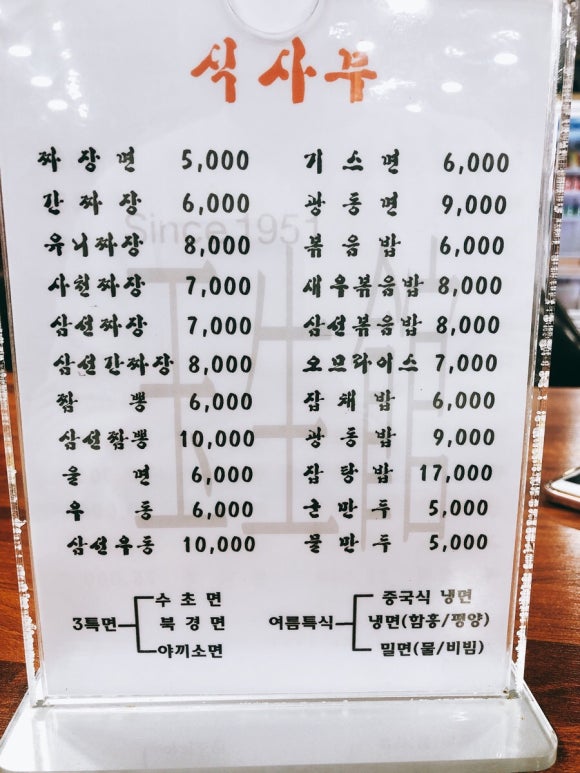 식사부
짜장면 5,000
간짜장 6,000
유니짜장 8,000
사천짜장 7,000
삼선짜장 7,000
삼선간짜장 8,000
짬뽕 6,000
삼선짬뽕 10,000
울면 6,000
우동 6,000
삼선우동 10,000
기스면 6,000
광동면 9,000
볶음밥 6,000
새우볶음밥 8,000
삼선볶음밥 8,000
오므라이스 7,000
잡채밥 6,000
광동밥 9,000
잡탕밥 17,000
군만두 5,000
물만두 5,000
3특면
수초면
북경면
야끼소면
여름특식
중국식 냉면
냉면(함흥/평양)
밀면(물/비빔)
Since 1951